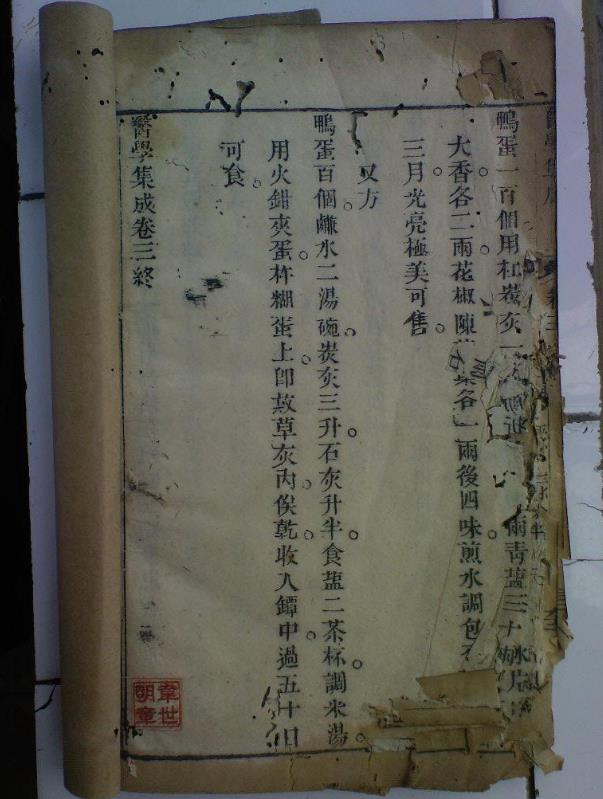 鴨蛋一百個用杠炭灰一 兩青塩三十
大香各二兩花椒陳 各一兩後四味煎水調包
三月光亮極美可售
又方
鴨蛋百個鹻水二湯碗炭灰三升石灰升半食塩二茶杯調米湯
用火鉗夾蛋杵糊蛋上即敷草灰內俟乾收入鐔中過五十日
可食
醫學集成卷三終
韋世
朝章